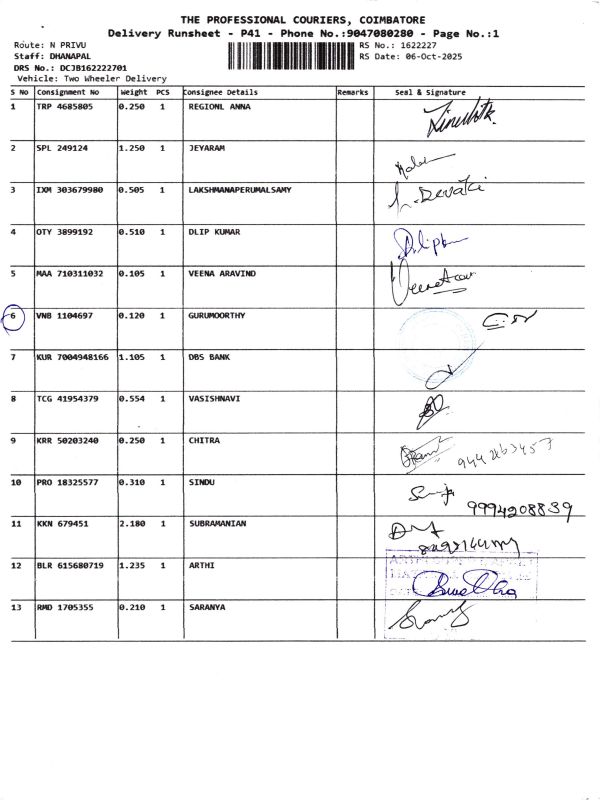 THE PROFESSIONAL COURIERS, COIMBATORE
Delivery Runsheet - P41 - Phone No.:9047080280 - Page No.:1
Route: N PRIVU RS No.: 1622227
Staff: DHANAPAL RS Date: 06-Oct-2025
DRS No.: DCJB162222701
Vehicle: Two Wheeler Delivery
S No Consignment No Weight PCS Consignee Details Remarks Seal & Signature
1 TRP 4685805 0.250 1 REGIONL ANNA
2 SPL 249124 1.250 1 JEYARAM
3 IXM 303679980 0.505 1 LAKSHMANAPERUMALSAMY
L. Devaki
4 OTY 3899192 0.510 1 DLIP KUMAR
5 MAA 710311032 0.105 1 VEENA ARAVIND
6 VNB 1104697 0.120 1 GURUMOORTHY
7 KUR 7004948166 1.105 1 DBS BANK
8 TCG 41954379 0.554 1 VASISHNAVI
9 KRR 50203240 0.250 1 CHITRA
10 PRO 18325577 0.310 1 SINDU
9994208839
11 KKN 679451 2.180 1 SUBRAMANIAN
12 BLR 615680719 1.235 1 ARTHI
13 RMD 1705355 0.210 1 SARANYA